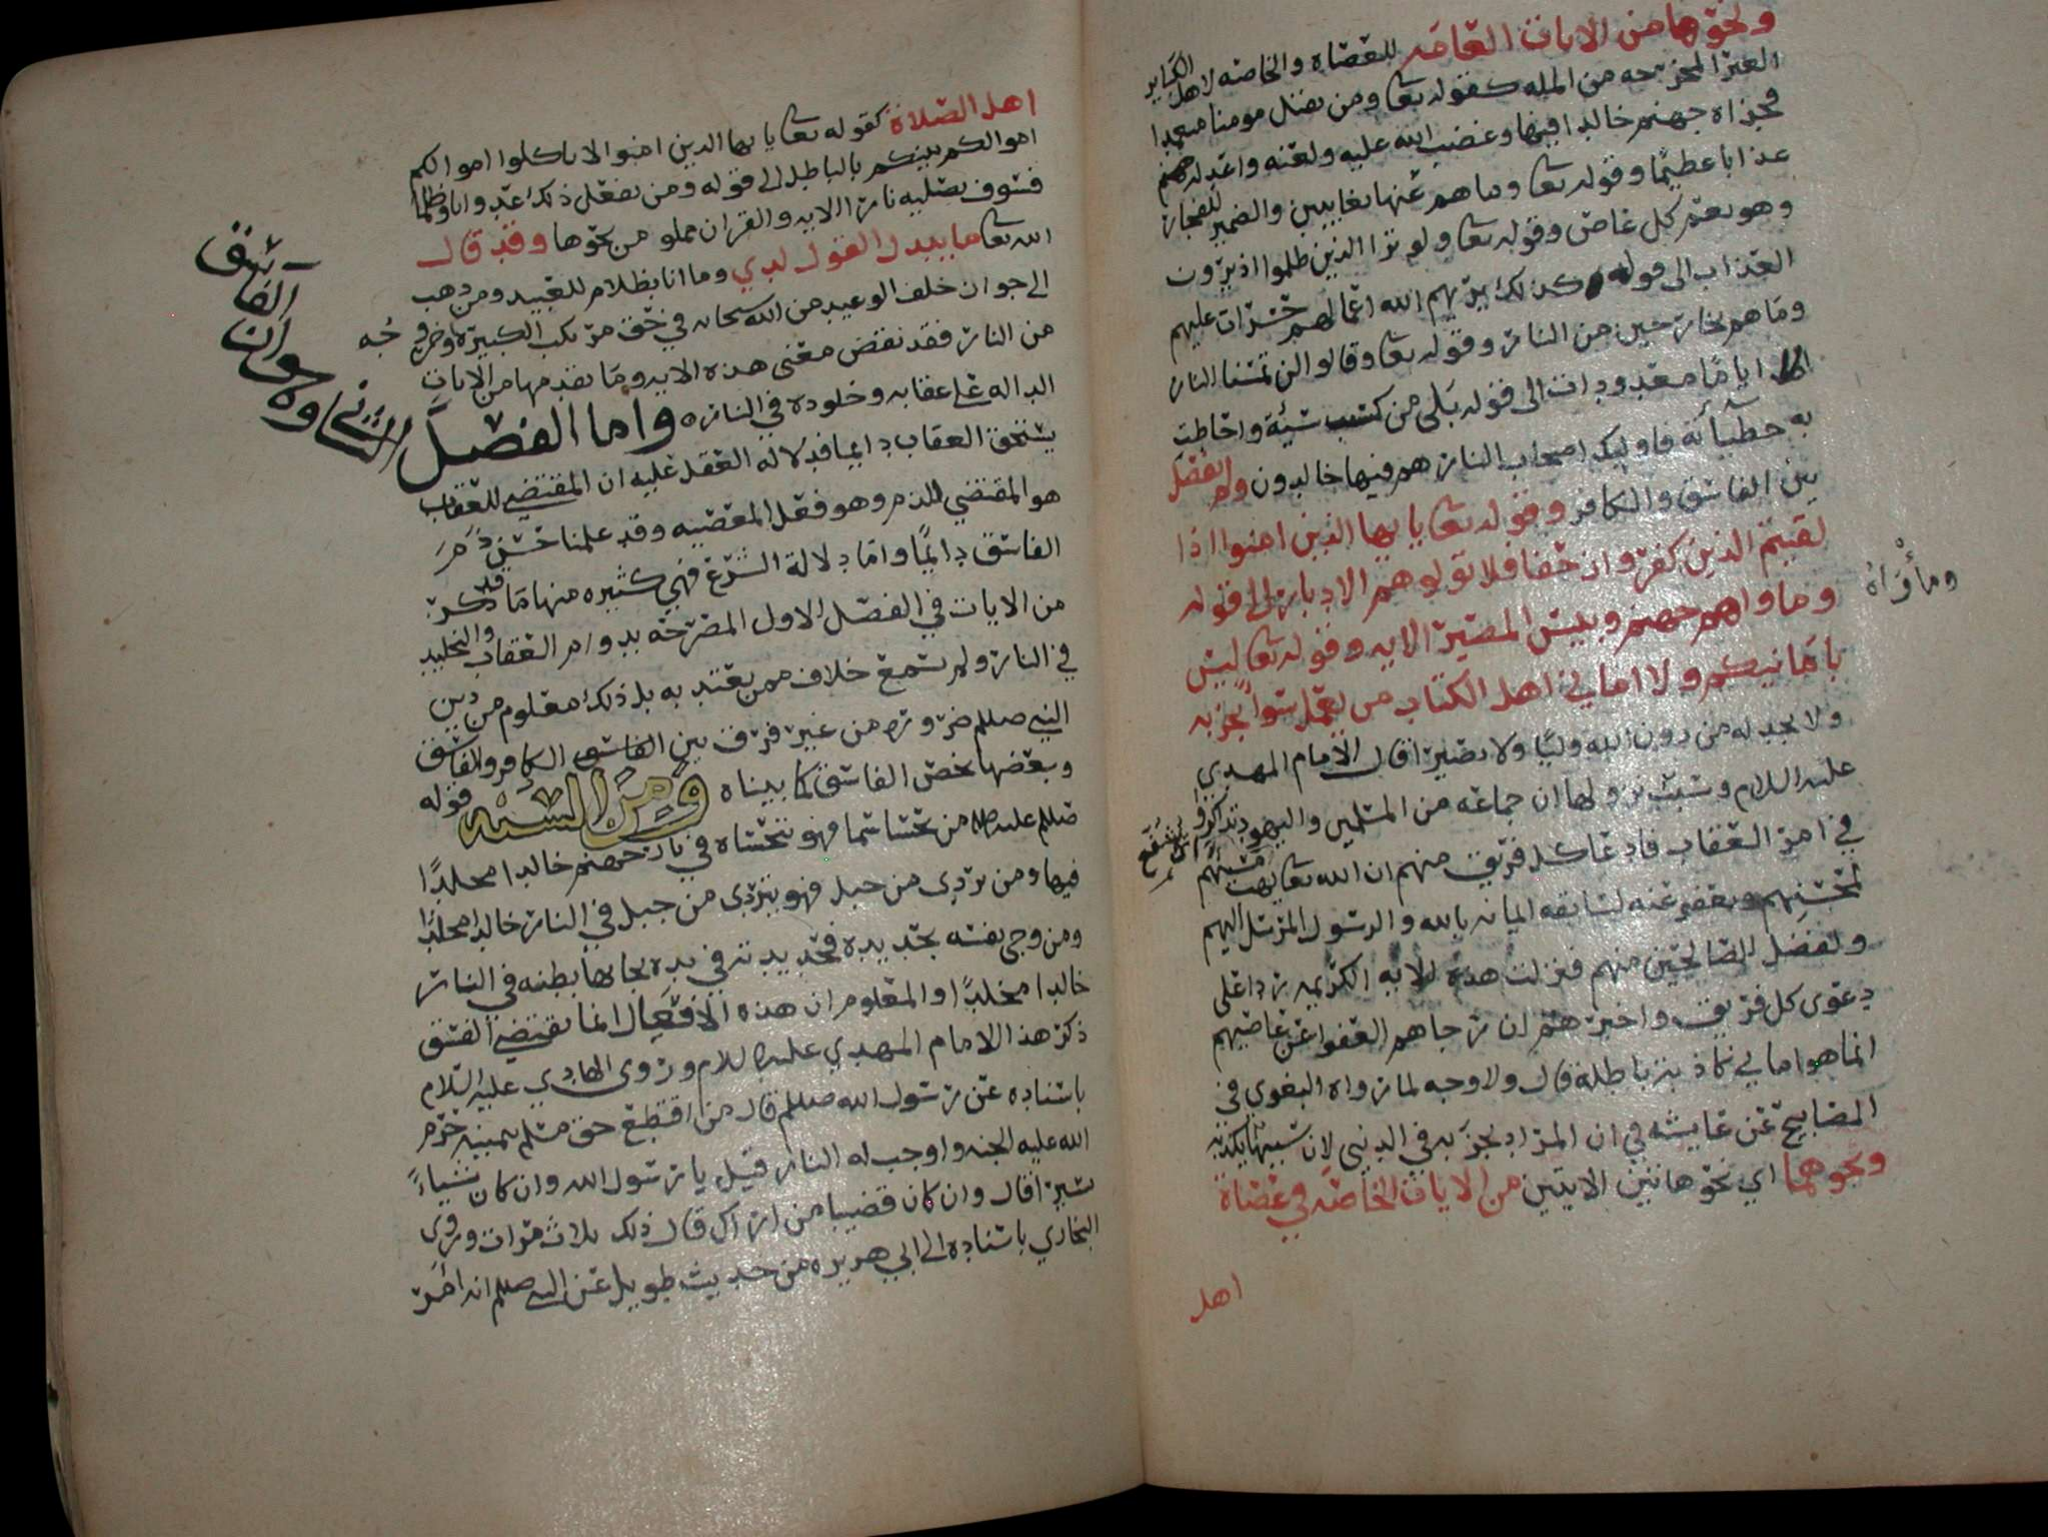 ونحوها من الايات العامه للعصاه والخاصه لاهل الكباير
الغير المخرجه من المله كقوله تعا ومن يقتل مومنا متعمدا
فجزاه جهنم خالدا فيها وغضب الله عليه ولعنه واعد له جهنم
عذابا عظيما وقوله تعا وما هم عنها بغايبين والضمير للفجار
وهو يعم كل عاص وقوله تعا ولو ترا الذين ظلموا اذ يرون
العذاب الى قوله كذلك يريهم الله اعمالهم حسرات عليهم
وما هم بخارجين من النار وقوله تعا وقالوا لن تمسنا النار
الا اياما معدودات الى قوله بلى من كسب سيئة واحاطت
به خطيآته فاوليك اصحاب النار هم فيها خالدون ولم يفصل
بين الفاسق والكافر وقوله تعا يا يها الذين امنوا اذا
لقيتم الذين كفروا زحفا فلا تولوهم الادبار الى قوله
وماواهم جهنم وبيس المصير الايه وقوله تعا ليس
ومأواه
بامانيكم ولا اماني اهل الكتاب من يعمل سوأ يجز به
ولا يجد له من دون الله وليا ولا نصيرا قال الامام المهدي
عليه السلام وسبب نزولها ان جماعه من المسلمين واليهود تذاكروا
في امر العقاب فادعا كل فريق منهم ان الله تعا يهب مسيهم
لمحسنهم ويعفو عنه لسابقه ايمانه بالله والرسول المرسل اليهم
وتفضل للصالحين منهم فنزلت هذه الايه الكريمه ردا على
دعوى كل فريق واخبرهم ان رجاهم العفو عن عاصيهم
انما هو اماني كاذبه باطلة قال ولا وجه لما رواه البغوي في
المصابيح عن عايشه في ان المراد يجز به في الدنيى لان سببها يكذبه
ونحوهما اي نحو هاتين الايتين من الايات الخاصه في عصاة
اهل
اهل الصلاة كقوله تعا يا يها الذين امنوا لا تاكلوا اموالكم
اموالكم بينكم بالباطل الى قوله ومن يفعل ذلك عدوانا وظلما
فسوف نصليه نارا الايه والقران مملو من نحوها وقد قال
الله تعا ما يبدل القول لدي وما انا بظلام للعبيد ومن ذهب
الى جواز خلف الوعيد من الله سبحانه في حق مرتكب الكبيرة وخروجه
من النار فقد نقض معنى هذه الايه وما تقدمها من الايات
الداله على عقابه وخلوده في النار واما الفصل
الثاني وهو ان الفاسق
يستحق العقاب دايما فدلاله العقل عليه ان المقتضي للعقاب
هو المقتضي للذم وهو فعل المعصيه وقد علمنا حسن ذم
الفاسق دايما واما دلالة الشرع فهي كثيره منها ما قد ذكر
من الايات في الفصل الاول المصرحه بدوام العقاب والتخليد
في النار ولم يسمع خلاف ممن يعتد به بل ذلك معلوم من دين
النبي صلعم ضروره من غير فرق بين الكافر والفاسق
وبعضها يخص الفاسق كما بيناه ومن السنه قوله
صلعم من تحسا سما فهو يتحساه في نار جهنم خالدا مخلدا
فيها ومن تردى من جبل فهو يتردى من جبل في النار خالدا مخلدا
ومن وجى نفسه بحديدة فحديدته في يده يجا بها بطنه في النار
خالدا مخلدا والمعلوم ان هذه الافعال انما تقتضي الفسق
ذكر هذا الامام المهدي عليه السلام وروى الهادي عليه السلام
باسناده عن رسول الله صلعم قال من اقتطع حق مسلم بيمينه حرم
الله عليه الجنه واوجب له النار قيل يا رسول الله وان كان شياء
يسيرا قال وان كان قضيبا من اراك قال ذلك ثلاث مرات وروى
البخاري باسناده الى ابي هريره من حديث طويل عن النبي صلعم انه امر